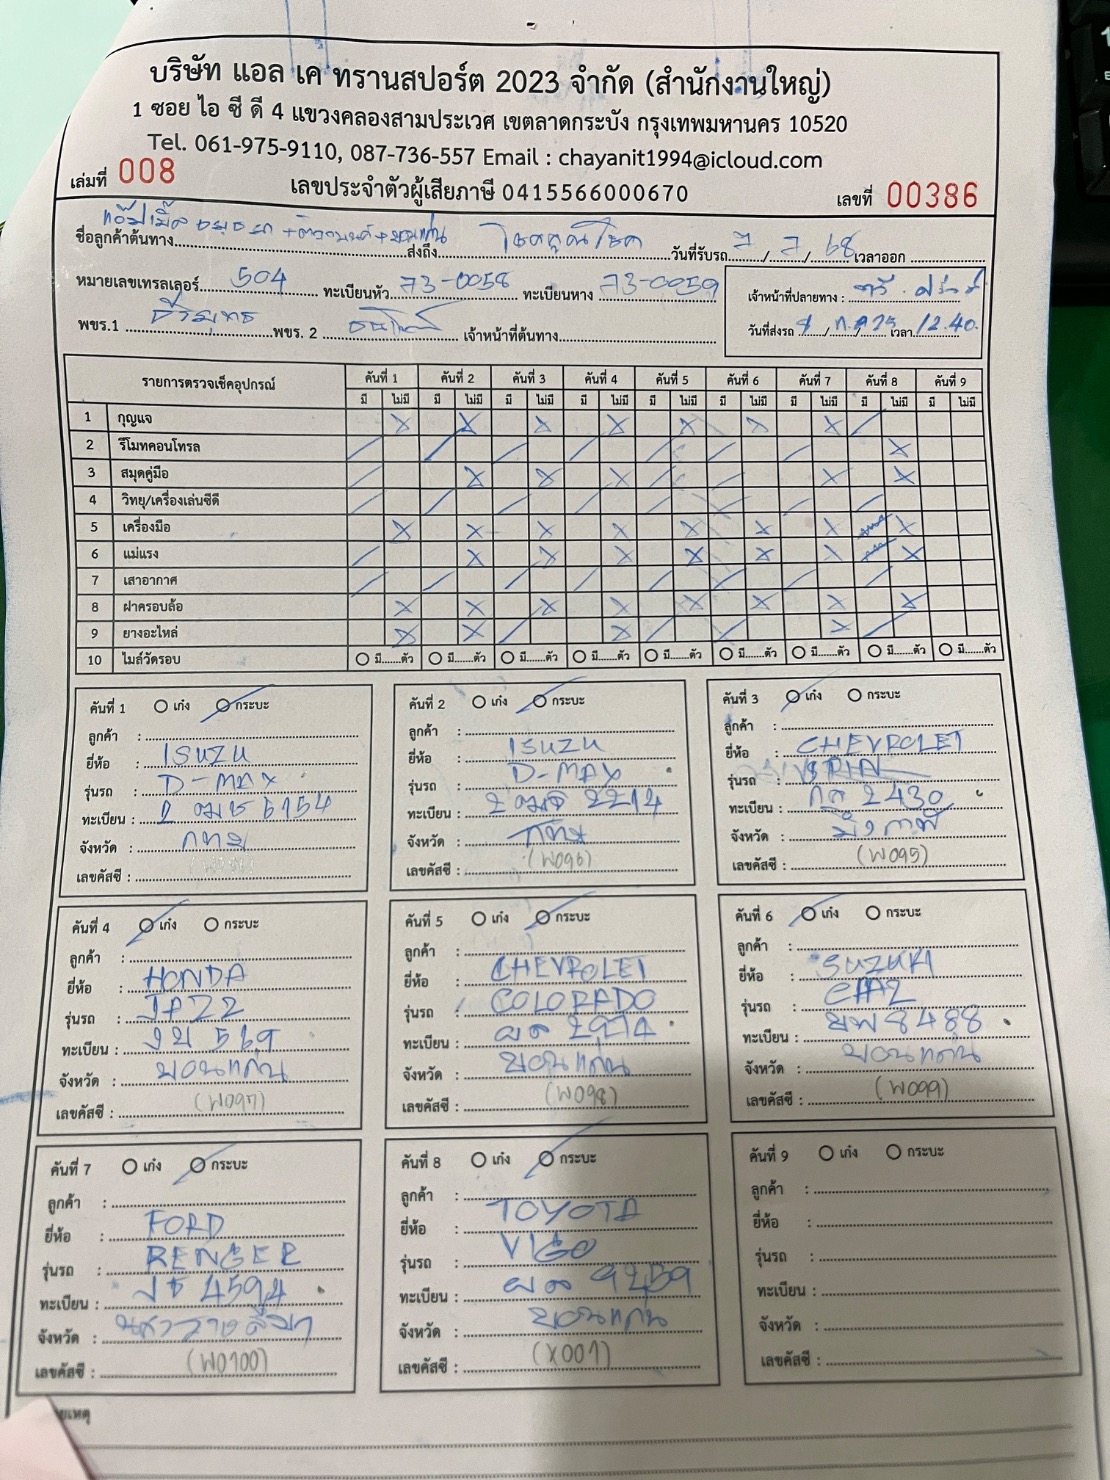 บริษัท แอล เค ทรานสปอร์ต 2023 จำกัด (สำนักงานใหญ่)
1 ซอย ไอ ซี ดี 4 แขวงคลองสามประเวศ เขตลาดกระบัง กรุงเทพมหานคร 10520
Tel. 061-975-9110, 087-736-557 Email : chayanit1994@icloud.com
เล่มที่ 008 เลขประจำตัวผู้เสียภาษี 0415566000670 เลขที่ 00386
ชื่อลูกค้าต้นทาง ส่งถึง โชคคูณโชค วันที่รับรถ 7/7/68 เวลาออก
หมายเลขเทรลเลอร์ 504 ทะเบียนหัว 73-0058 ทะเบียนหาง 73-0059 เจ้าหน้าที่ปลายทาง :
พขร.1 พขร. 2 เจ้าหน้าที่ต้นทาง วันที่ส่งรถ ก.ค 25 เวลา 12.40.
รายการตรวจเช็คอุปกรณ์ คันที่ 1 คันที่ 2 คันที่ 3 คันที่ 4 คันที่ 5 คันที่ 6 คันที่ 7 คันที่ 8 คันที่ 9
มี ไม่มี มี ไม่มี มี ไม่มี มี ไม่มี มี ไม่มี มี ไม่มี มี ไม่มี มี ไม่มี มี ไม่มี
1 กุญแจ
2 รีโมทคอนโทรล
3 สมุดคู่มือ
4 วิทยุ/เครื่องเล่นซีดี
5 เครื่องมือ
6 แม่แรง
7 เสาอากาศ
8 ฝาครอบล้อ
9 ยางอะไหล่
10 ไมล์วัดรอบ มี......ตัว มี......ตัว มี......ตัว มี......ตัว มี......ตัว มี......ตัว มี......ตัว มี......ตัว มี......ตัว
คันที่ 1 เก๋ง กระบะ
ลูกค้า :
ยี่ห้อ : ISUZU
รุ่นรถ : D-MAX
ทะเบียน : 2 ฒช 6154
จังหวัด : กทม
เลขคัสซี :
คันที่ 2 เก๋ง กระบะ
ลูกค้า :
ยี่ห้อ : ISUZU
รุ่นรถ : D-MAX
ทะเบียน : 2 ฒฉ 2214
จังหวัด : กทม
เลขคัสซี : (W096)
คันที่ 3 เก๋ง กระบะ
ลูกค้า :
ยี่ห้อ : CHEVROLET
รุ่นรถ :
ทะเบียน : กค 2430
จังหวัด : บึงกาฬ
เลขคัสซี : (W095)
คันที่ 4 เก๋ง กระบะ
ลูกค้า :
ยี่ห้อ : HONDA
รุ่นรถ : JAZZ
ทะเบียน : งข 569
จังหวัด : ขอนแก่น
เลขคัสซี : (W097)
คันที่ 5 เก๋ง กระบะ
ลูกค้า :
ยี่ห้อ : CHEVROLET
รุ่นรถ : COLORADO
ทะเบียน : ผล 2974
จังหวัด : ขอนแก่น
เลขคัสซี : (W098)
คันที่ 6 เก๋ง กระบะ
ลูกค้า :
ยี่ห้อ : SUZUKI
รุ่นรถ : CIAZ
ทะเบียน : ขพ 8488
จังหวัด : ขอนแก่น
เลขคัสซี : (W099)
คันที่ 7 เก๋ง กระบะ
ลูกค้า :
ยี่ห้อ : FORD
รุ่นรถ : RENGER
ทะเบียน : 4594
จังหวัด : นครราชสีมา
เลขคัสซี : (W0100)
คันที่ 8 เก๋ง กระบะ
ลูกค้า :
ยี่ห้อ : TOYOTA
รุ่นรถ : VIGO
ทะเบียน : ผล 9259
จังหวัด : ขอนแก่น
เลขคัสซี : (X001)
คันที่ 9 เก๋ง กระบะ
ลูกค้า :
ยี่ห้อ :
รุ่นรถ :
ทะเบียน :
จังหวัด :
เลขคัสซี :